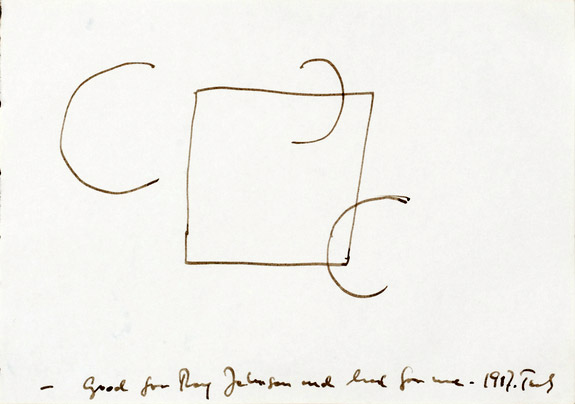 – Good for Ray Johnson and bad for me. - 1987.